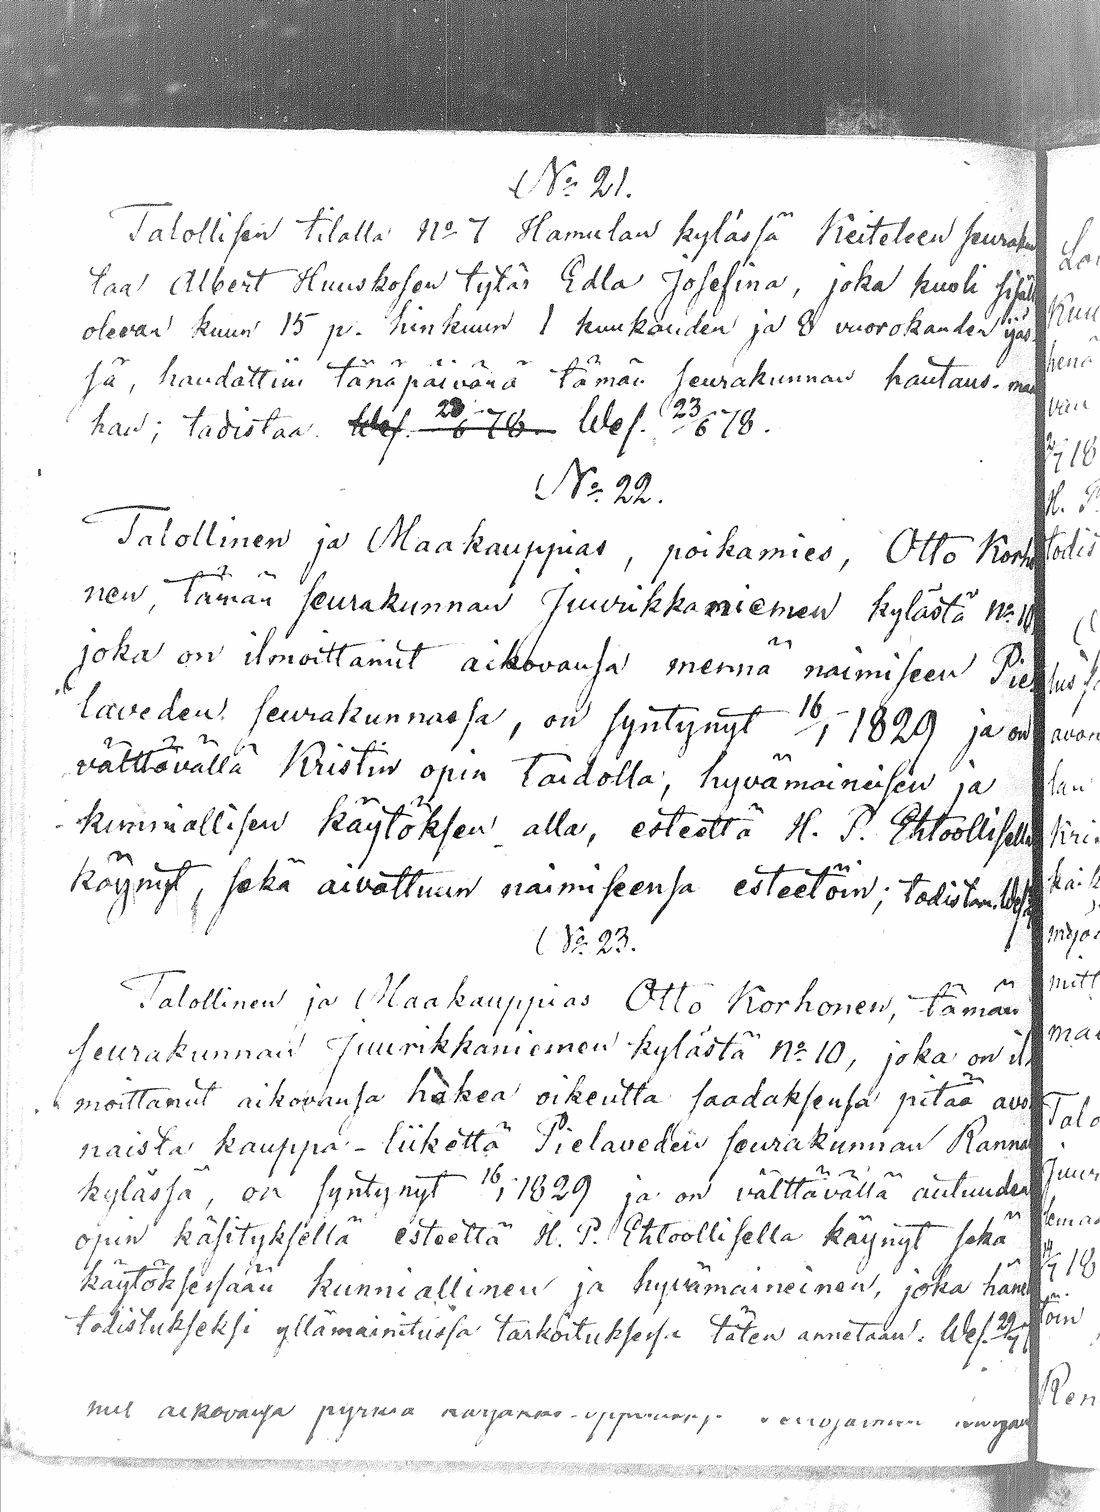 No 21.
Talollisen tilalla No 7 Hamulan kylässä Keiteleen seuraku
taa Albert Huuskosen tytär Edla Josefina, joka kuoli sisäll
olevan kuun 15 p. hinkuun 1 kuukauden ja 8 vuorokauden ijäs-
sä, haudattiin tänäpäivänä tämän seurakunnan hautaus-maa
han; todistaa. Wes. 23/6 78. Wes. 23/6 78.
No 22.
Talollinen ja Maakauppias, poikamies, Otto Korho
nen, tämän seurakunnan Juurikkaniemen kylästä No 10
joka on ilmoittanut aikovansa mennä naimiseen Pie
laveden seurakunnassa, on syntynyt 16/1 1829 ja on
välttävällä Kristin opin taidolla, hyvämaineisen ja
kunniallisen käytöksen alla, esteettä H. P. Ehtoollisella
käynyt, sekä aivottuun naimiseensa esteetöin; todistaa. Wes.
No 23.
Talollinen ja Maakauppias Otto Korhonen, tämän
seurakunnan Juurikkaniemen kylästä No 10, joka on il
moittanut aikovansa hakea oikeutta saadaksensa pitää avo
naista kauppa-liikettä Pielaveden seurakunnan Ranna
kylässä, on syntynyt 16/1 1829 ja on välttävällä autuuden
opin käsityksellä esteettä H. P. Ehtoollisella käynyt sekä
käytöksessään kunniallinen ja hyvämaineinen, joka häne
todistukseksi yllämainitussa tarkoituksessa täten annetaan. Wes. 29/7
nut aikovansa pyrkiä
Kuu
henä
van
2/7 18
H. P.
todis
avon
lan
Kri
kaik
mitt
maa
Talo
Juur
18
töin
Ren